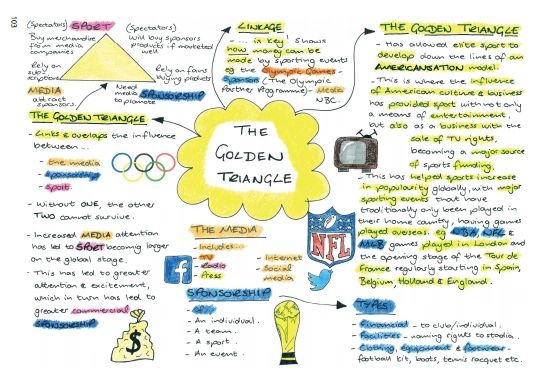 103
(Spectators) SPORT (Spectators)
Buy merchandise
from media
companies
Will buy sponsors
products if marketed
well
Rely on sub-
scriptions
Rely on fans
buying products
MEDIA
attract
sponsors.
Need
media
to promote
SPONSORSHIP
THE GOLDEN TRIANGLE
- Links & overlaps the influence
between ...
- the media
- sponsorship
- sport.
- Without ONE, the other
TWO cannot survive.
- Increased MEDIA attention
has led to SPORT becoming larger
on the global stage.
- This has led to greater
attention & excitement,
which in turn has led to
greater commercial
SPONSORSHIP
$
LINKAGE
- ... is 'key' Shows
how money can be
made by sporting events
eg the Olympic Games -
Sponsors (The Olympic
Partner Programme) - Media
NBC.
THE
GOLDEN
TRIANGLE
THE MEDIA
- Includes...
- TV
- Radio
- Press
- Internet
- Social
media
f
SPONSORSHIP
- Of...
- An individual.
- A team.
- A sport.
- An event.
NFL
THE GOLDEN TRIANGLE
- Has allowed elite sport to
develop down the lines of an
AMERICANSATION model.
- This is where the influence
of American culture & business
has provided sport with not only
a means of entertainment
but also as a business with the
sale of TV rights,
becoming a major source
of sports funding.
- This has helped sports increase
in popularity globally, with major
sporting events that have
traditionally only been played in
their home country, having games
played overseas. eg NBA, NFL &
MLB games played in London and
the opening stage of the Tour de
France regularly starting in Spain,
Belgium, Holland & England.
TYPES
- Financial - to club/individual.
- Facilities - naming rights to stadia.
- Clothing, equipment & footwear -
football kit, boots, tennis racquet etc.